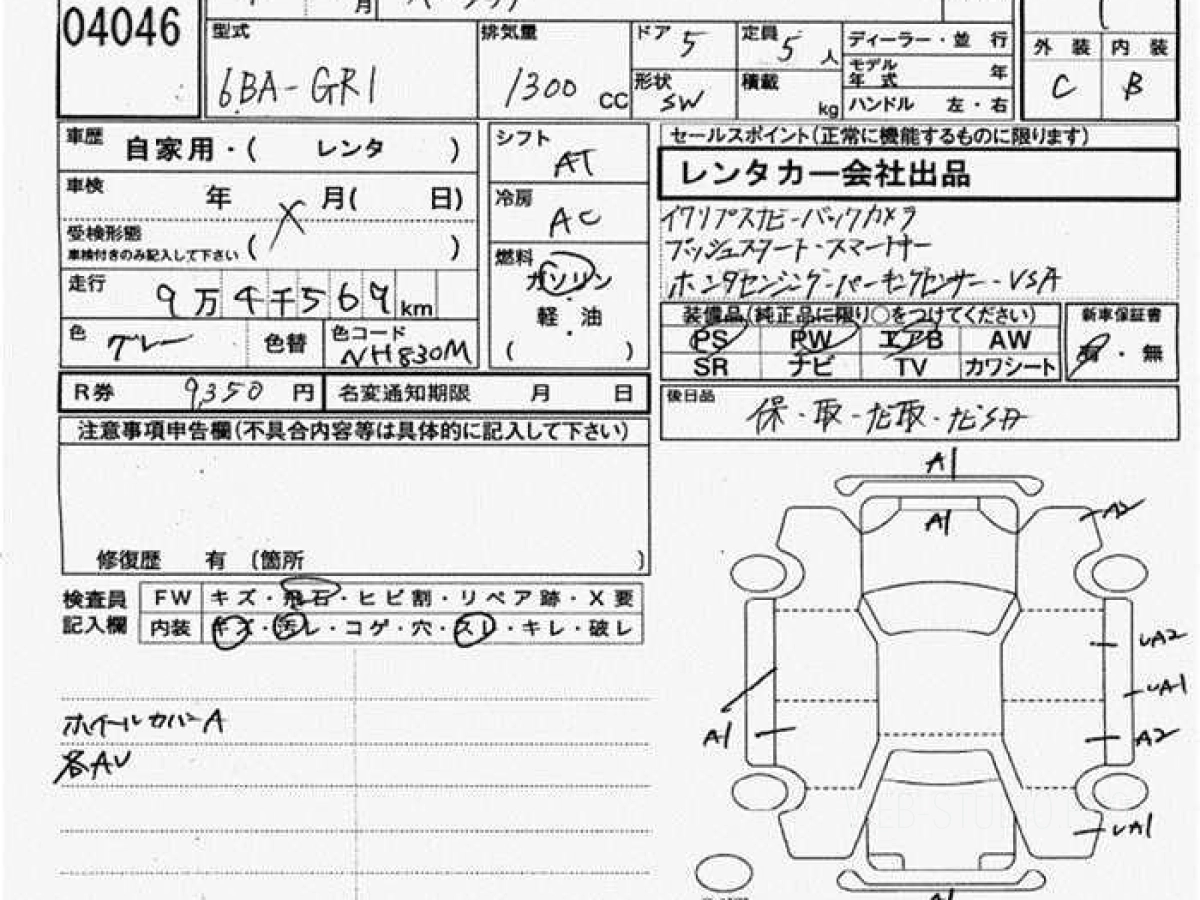 04046
月
型式
6BA-GR1
排気量
1300 CC
ドア 5
定員 5 人
形状 SW
積載 kg
ディーラー・並 行
モデル年式 年
ハンドル 左・右
外装 内装
C B
車歴 自家用・( レンタ )
車検 年 X 月( 日)
受検形態
車検付きのみ記入して下さい ( )
走行 9万4千569km
色 グレー 色替 色コード NH830M
R券 9,350 円 名変通知期限 月 日
シフト AT
冷房 AC
燃料
ガソリン
軽・油
( )
セールスポイント(正常に機能するものに限ります)
レンタカー会社出品
イクリプスナビーバックカメラ
プッシュスタート・スマートキー
ホンダセンシング・パーキングセンサー・VSA
装備品(純正品に限り○をつけてください)
PS PW エアB AW
SR ナビ TV カワシート
新車保証書
有・無
後日品
保-取-ナビ取・ナビSD
注意事項申告欄(不具合内容等は具体的に記入して下さい)
修復歴 有 (箇所 )
検査員記入欄
FW キズ・飛石・ヒビ割・リペア跡・X要
内装 キズ・汚レ・コゲ・穴・スレ・キレ・破レ
ホイールカバーA
各AU
A1
A1
A2
UA2
UA1
A1
A2
UA1
A1